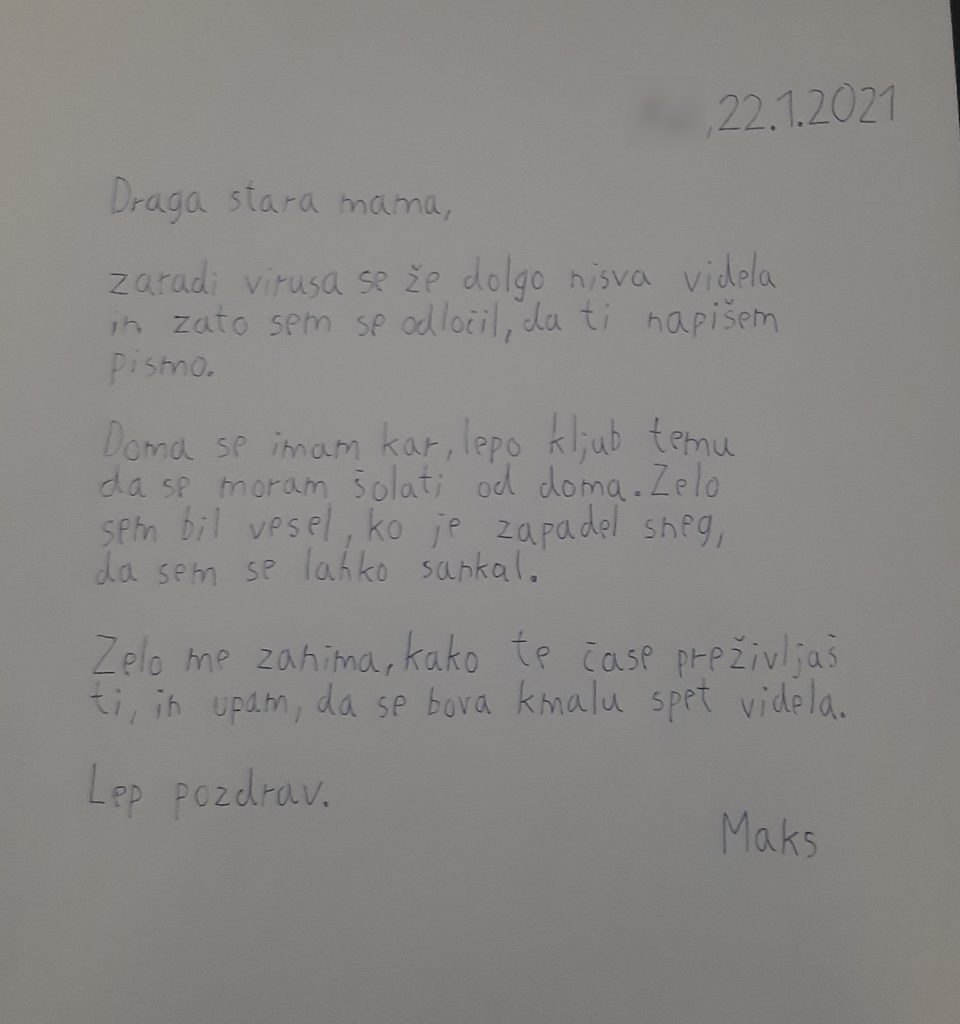 ,22.1.2021
Draga stara mama,
zaradi virusa se že dolgo nisva videla
in zato sem se odločil, da ti napišem
pismo.
Doma se imam kar, lepo kljub temu
da se moram šolati od doma. Zelo
sem bil vesel, ko je zapadel sneg,
da sem se lahko sankal.
Zelo me zanima, kako te čase preživljaš
ti, in upam, da se bova kmalu spet videla.
Lep pozdrav.
Maks